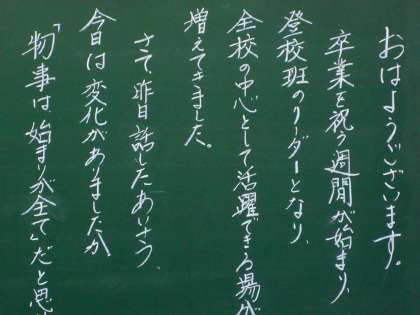 おはようございます。
卒業を祝う週間が始まり、
登校班のリーダーとなり、
全校の中心として活躍できる場が
増えてきました。
さて、昨日話したあいさつ、
今日は変化がありましたか
「物事は、始まりが全て」だと思